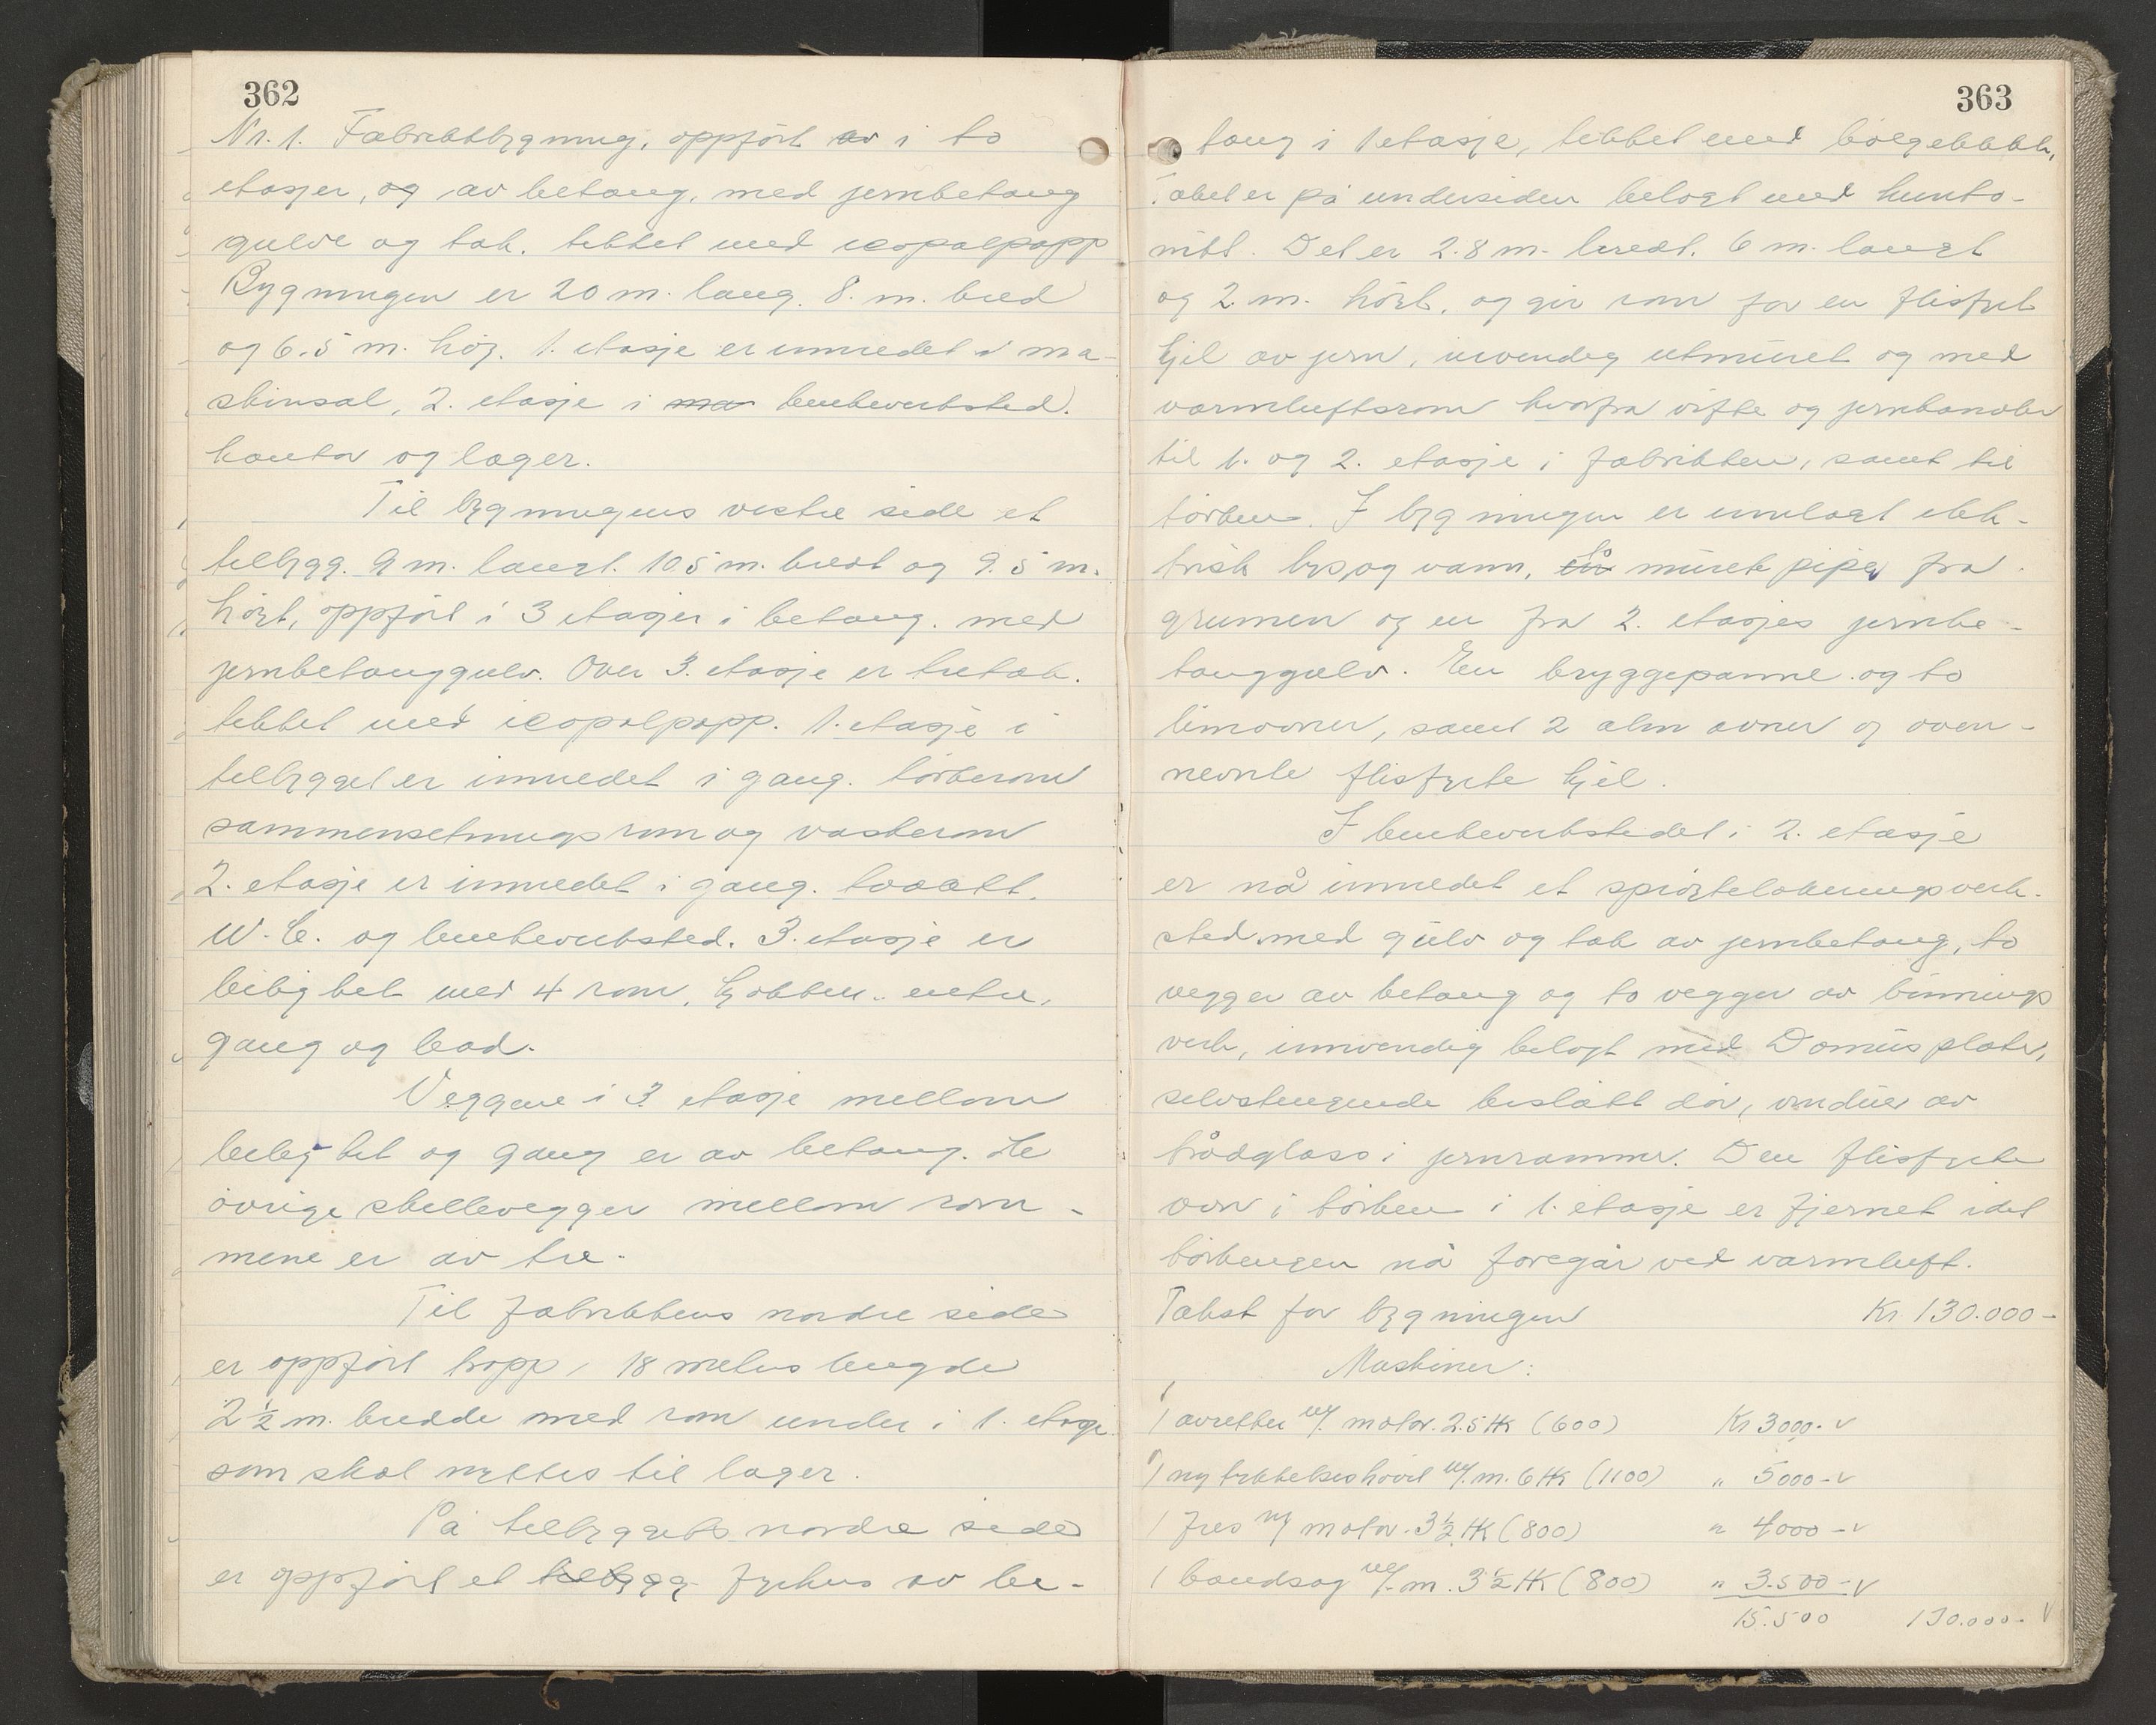 362
Nr. 1. Fabrikkbygning, oppført av i to
etasjer, og av betong, med jernbetong
gulve og tak. tekket med icopalpapp
Bygningen er 20 m. lang. 8. m. bred
og 6.5 m. høg. 1. etasje er innredet i ma-
skinsal, 2. etasje i ma benkeverksted.
kontor og lager.
Til bygningens vestre side et
tilbygg. 9 m. langt. 10.5 m. bredt og 9.5 m.
høgt, oppført i 3 etager i betong. med
jernbetonggulv. Over 3. etasje er tretak.
tekket med icopalpapp. 1. etasje i
tilbygget er innredet i gang. tørkerom
sammensetnings rom og vaskerom
2. etasje er innredet i gang. toalett.
W.C. og benkeverksted. 3. etasje er
leilighet med 4 rom, kjøkken. entre,
gang og bad.
Veggene i 3 etasje mellom
leilighet og gang er av betong. De
øvrige skillevegger mellom rom-
mene er av tre.
Til fabrikkens nordre side
er oppført trapp, 18 meters lengde
2 ½ m. bredde med rom under i 1. etage
som skal nyttes til lager.
På tilbyggets nordre side
er oppført et tilbygg fyrhus av be-
363
tong i 1 etasje, tekket med bølgeblikk,
Taket er på undersiden belagt med hunto-
nitt. Det er 2.8 m. bredt. 6 m. langt
og 2. m. høgt. og gir rom for en flisfyrt
kjel av jern, invendig utmuret og med
varmluftsrom hvorfra vifte og jernkanaler
til 1. og 2. etasje i fabrikken, samt til
tørken. I bygningen er innlagt elek-
trisk lys og vann, en to murte piper fra
grunnen og en fra 2. etasjes jernbe-
tonggulv. En bryggepanne og to
limovner, samt 2 alm ovner og oven-
nevnte flisfyrte kjel.
I benkeverkstedet i 2. etasje
er nå innredet et sprøytelakeringsverk-
sted med gulv og tak av jernbetong, to
vegger av betong og to vegger av binnings
verk, innvendig belagt med Domus plater,
selvstengende beslått dør, vinduer av
trådglass i jernrammer. Den flisfyrte
ovn i tørken i 1. etasje er fjernet idet
tørkingen nå foregår ved varmluft.
Takst for bygningen Kr. 130.000-
Maskiner:
1 avretter m/. motor. 2.5 HK (600) Kr 3000.- v
1 ny tykkelseshøvil m/. m. 6 HK (1100) " 5000 - v
1 fres m/ motor. 3 ½ HK (800) " 4000 - v
1 bandsag m/. m. 3 ½ HK (800) " 3.500 - v
15.500 130.000- v